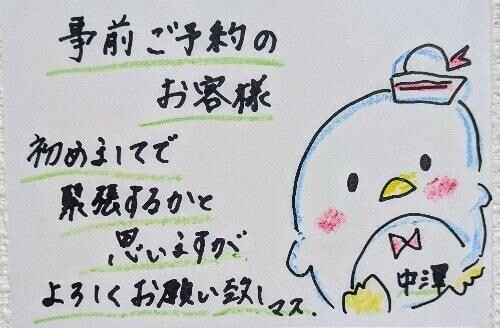 事前ご予約の
お客様
初めましてで
緊張するかと
思いますが
よろしくお願い致しマス.
中澤